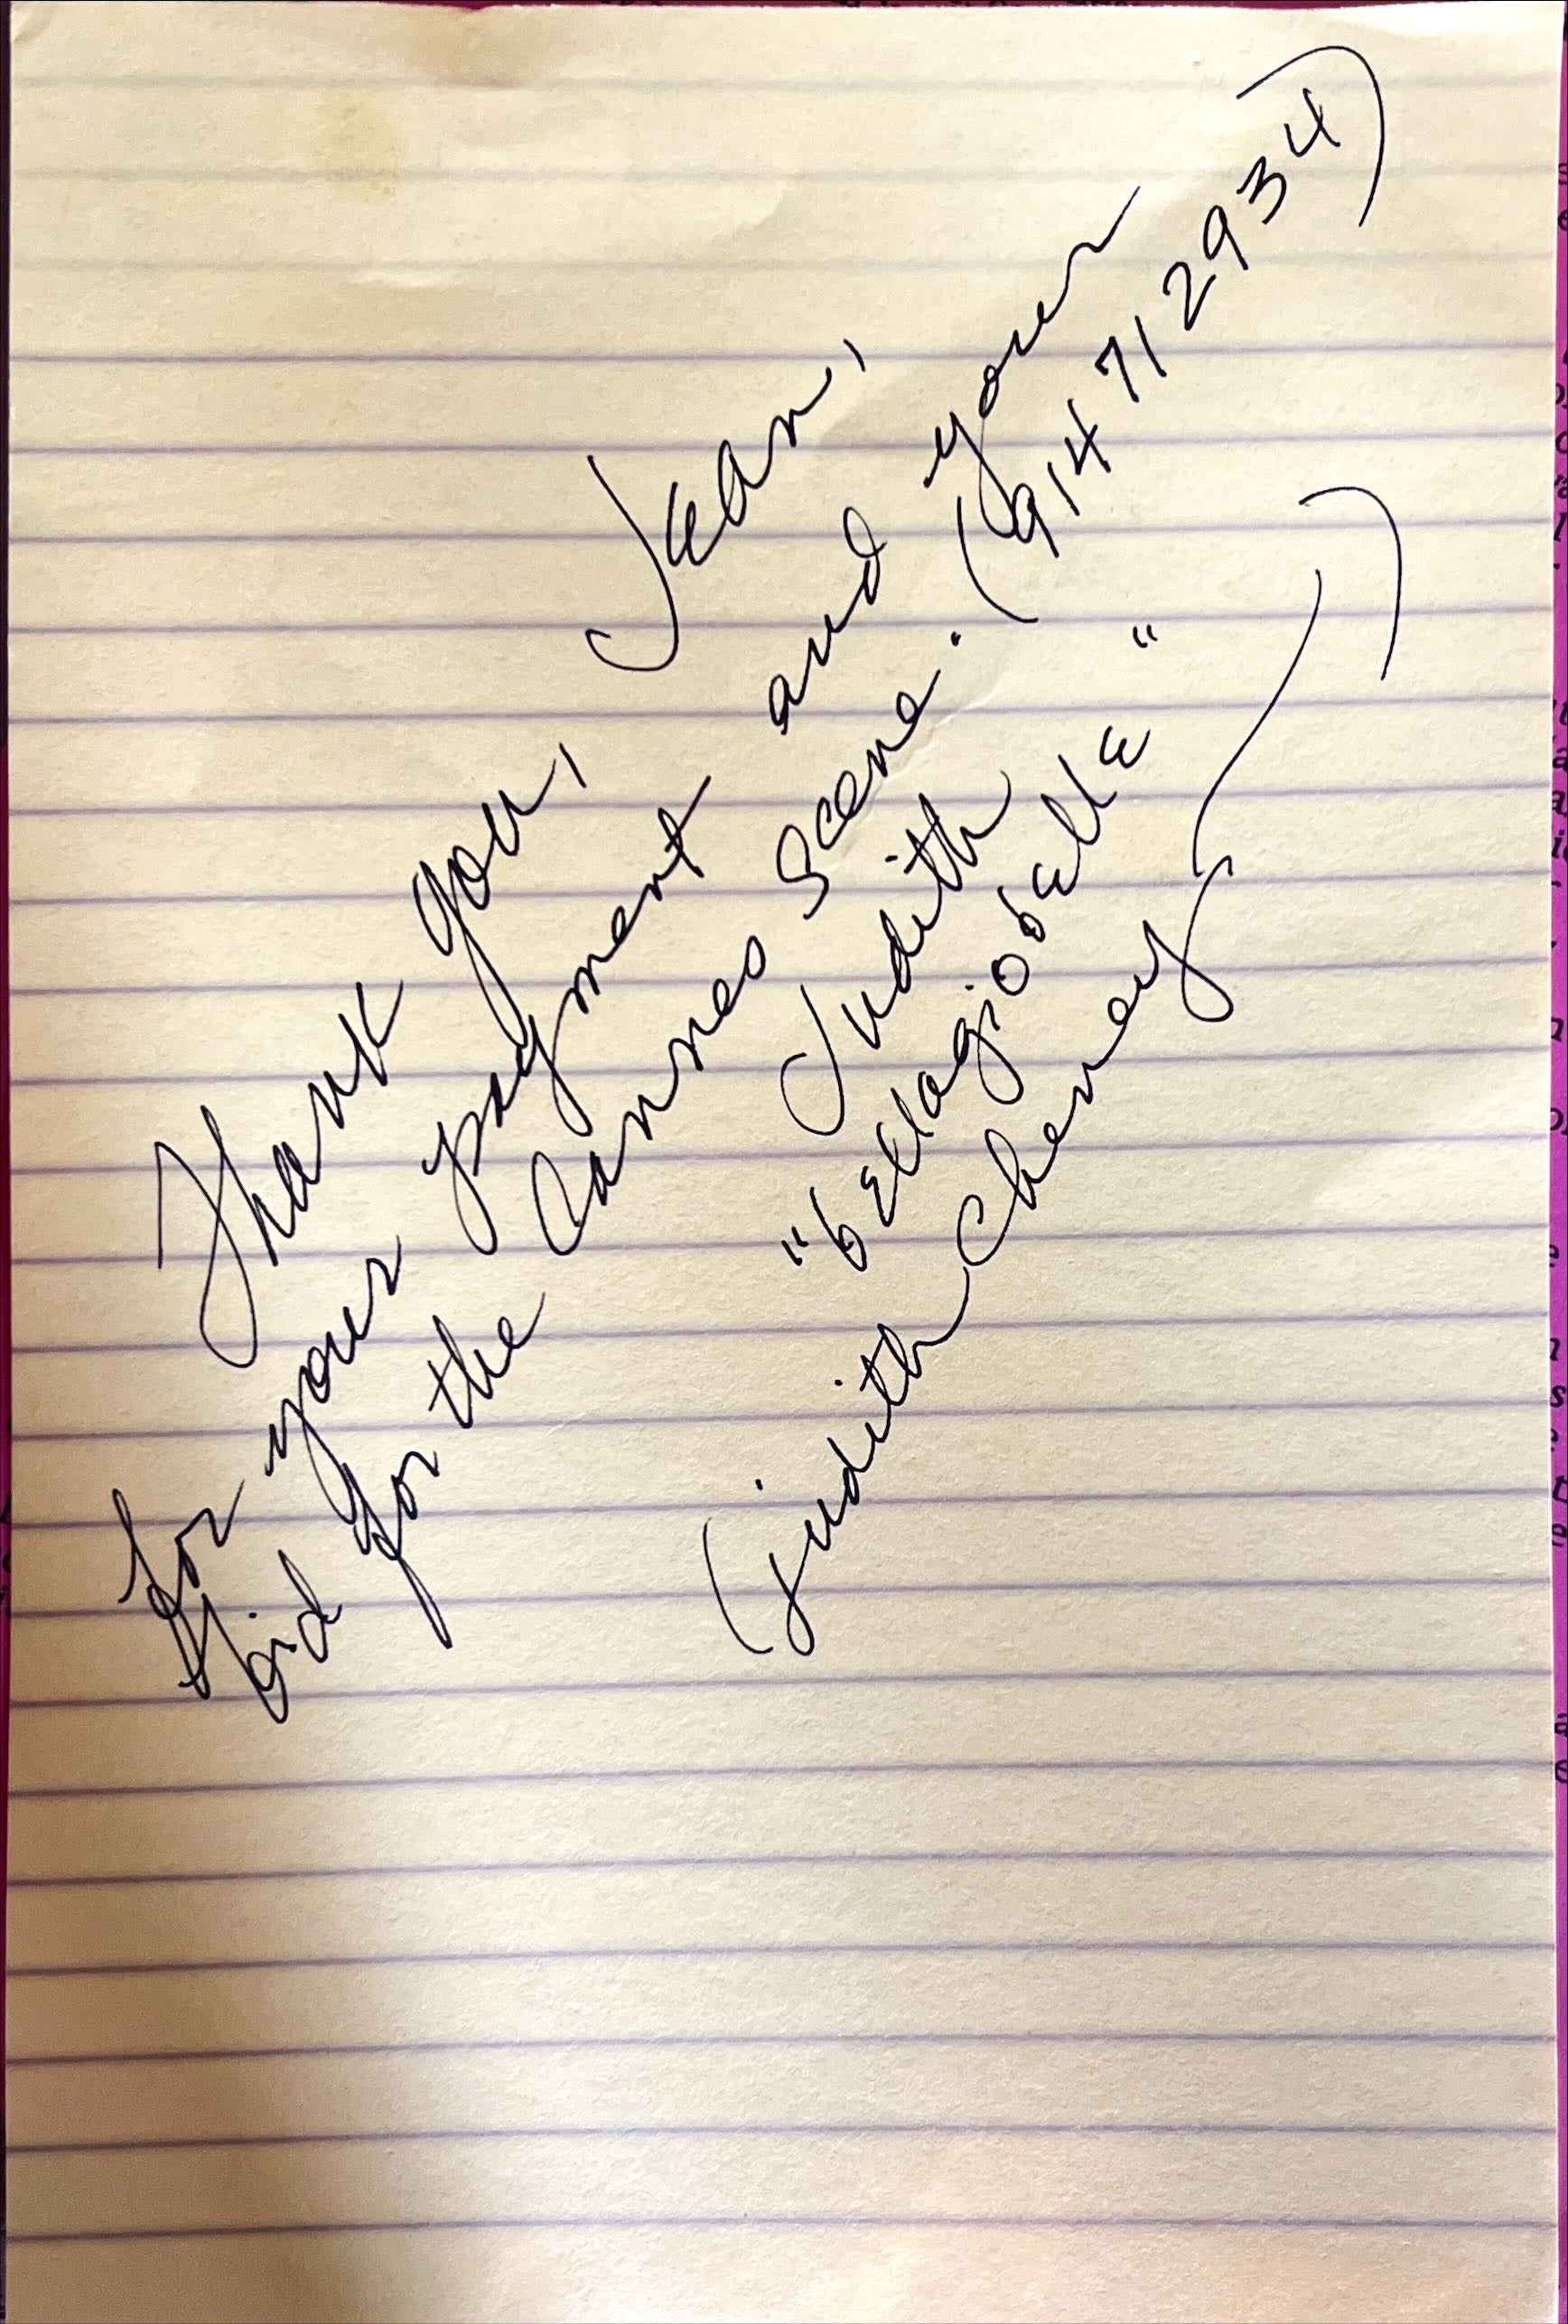 Thank you, Jean,
for your payment and your
bid for the Cannes Scene. (914712934)
Judith
"bellagiobelle"
(judith cheney)